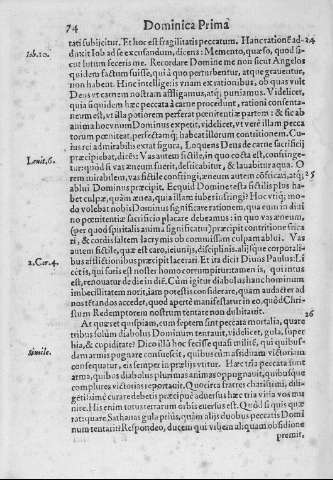 74 Dominica Prima
tati subijcitur. Et hoc est fragilitatis peccatum. Hanc rationē ad- 24
Iob. 10. duxit Iob ad se excusandum, dicens: Memento, quæso, quod si-
cut lutum feceris me. Recordare Domine me non sicut Angelos
quidem factum fuisse, qui à quo perturbentur, atque grauentur,
non habent. Hinc intelligeis vnam ex rationibus, ob quas vult
Deus vt carnem nostram affligamus, atq; puniamus. Videlicet,
quia siquidem hæc peccata à carne procedunt, rationi consenta-
neum est, vt illa potiorem perferat pœnitentiæ partem: & sic ab
anima hoc vnum Dominus expetit, videlicet, vt verè illam pecca-
torum pœniteat, perfectamq; habeat illorum contritionem. Cu-
ius rei admirabilis extat figura, Loquens Deus de carne sacrificij
Leuit. 6. præcipiebat, dicēs: Vas autem fictile, in quo cocta est, confringe-
tur: quod si vas æneum fuerit, defricabitur, & lauabitur aqua. O
rem mirabilem, vas fictile confringi, æneum autem cōfricari, atq; 25
ablui Dominus præcipit. Ecquid Domine testa fictilis plus ha-
bet culpæ, quàm ænea, quia illam iuberis infringi? Hoc vtiq; mo-
do volebat nobis Dominus significare rationem, qua eum in diui
no pœnitentiæ sacrificio placare debeamus: in quo vas æneum,
(per quod spiritalis anima significatur) præcipit contritione frica
ri, & cordis saltem lacrymis ob commissam culpam ablui. Vas
autem fictile, quæ est caro, ieiunijs, disciplinis, alijsque corporali-
2. Cor. 4. bus afflictionibus præcipit lacerari. Et ita dicit Diuus Paulus: Li
cet is, qui foris est noster homo corrumpitur: tamen is, qui intus
est, renouatur de die in diē. Cùm igitur diabolus hanc hominum
imbecillitatem norit, iam potestis considerare, quàm audacter ad
nos tētandos accedet, quod apertè manifestatur in eo, quòd Chri-
stum Redemptorem nostrum tentare non dubitarit.
At quæret quispiam, cùm septem sint peccata mortalia, quare 26
tribus solùm diabolus Dominum tentauit, videlicet, gula, super
bia, & cupiditate? Dico illū hoc fecisse quasi militē, qui quibus-
Simile. dam armis pugnare consuescit, quibus cùm assiduam victoriam
consequatur, eis semper in prælijs vtitur. Hæc tria peccata sunt
arma, quibus diabolus plurimas animas oppugnauit, quibusque
complures victorias reportauit. Quocirca fratres charissimi, dili-
gētissimè curare debetis præcipuè aduersus hæc tria vitia vos mu
nire. His enim totus terrarum orbis euersus est. Quòd si quis quæ
rat: quare Sathanas gula priùs, quàm alijs duobus peccatis Domi
num tentarit? Respondeo, ducem qui vrbem aliquam obsidione
premit,